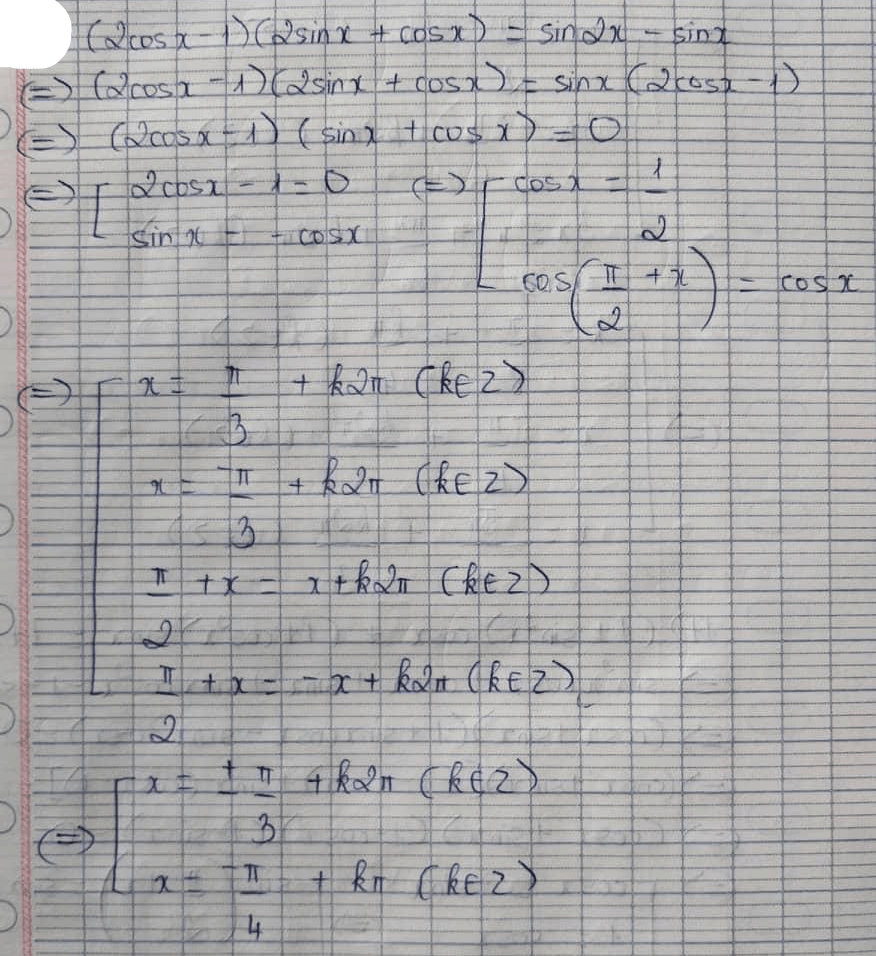 (2cosx - 1)(2sinx + cosx) = sin2x - sinx
(=) (2cosx - 1)(2sinx + cosx) = sinx (2cosx - 1)
(=) (2cosx - 1) (sinx + cosx) = 0
(=) [ 2cosx - 1 = 0 (=) [ cosx = 1/2
sinx = - cosx cos(π/2 + x) = cosx
(=) [ x = π/3 + k2π (k∈Z)
x = -π/3 + k2π (k∈Z)
π/2 + x = x + k2π (k∈Z)
π/2 + x = -x + k2π (k∈Z)
(=) [ x = ± π/3 + k2π (k∈Z)
x = -π/4 + kπ (k∈Z)